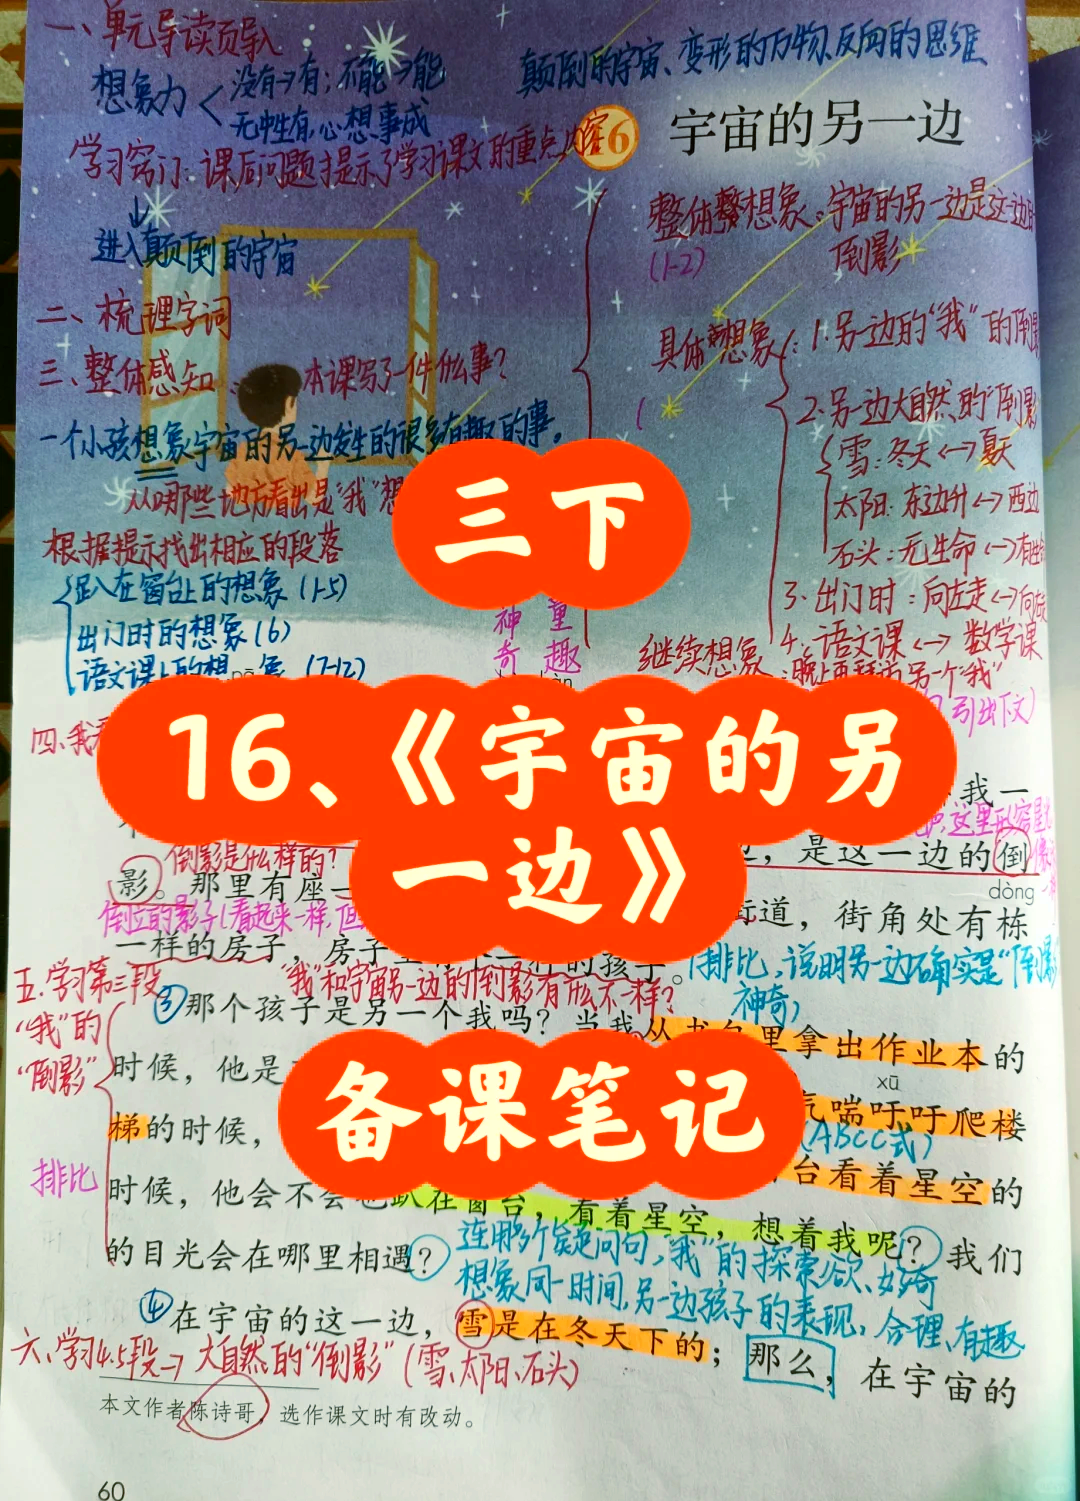 一、单元导读页导入
想象力
没有→有；不能→能
无中生有,心想事成
颠倒的宇宙、变形的万物、反向的思维
学习窍门：课后问题提示了学习课文的重点内容
16
宇宙的另一边
进入颠倒的宇宙
整体 想象：宇宙的另一边是这一边的
倒影
(1-2)
二、梳理字词
三、整体感知
本课写了一件什么事?
具体 想象：
1.另一边的“我”的倒影
2.另一边大自然的“倒影
雪：冬天<->夏天
太阳：东边升<->西边
石头：无生命<->有生命
3.出门时：向左走<->向右走
4.语文课<->数学课
一个小孩想象宇宙的另一边发生的很多有趣的事。
从哪些地方看出是“我”想
根据提示找出相应的段落
趴在窗台上的想象(1-5)
出门时的想象(6)
语文课上的想象(7-12)
神奇
童趣
继续想象
另一个“我”
引出下文)
三下
16、《宇宙的另
一边》
备课笔记
四、我
我一
这里形容星
倒影是什么样的?
，是这一边的倒
影。那里有座一
dòng
倒立的影子(看起来一样,但
街道，街角处有栋
一样的房子，房子里
的孩子。
(排比,说明另一边确实是“倒影
神奇)
五.学习第三段
“我”和宇宙另一边的倒影有什么不一样?
③那个孩子是另一个我吗？当我从书包里拿出作业本的
“我”的
“倒影”
时候，他是
xū
气喘吁吁爬楼
梯的时候，
(ABCC式)
台看着星空的
排比
时候，他会不会也趴在窗台，看着星空，想着我呢？我们
的目光会在哪里相遇？
连用多个疑问句,“我”的探索欲、好奇
想象同一时间,另一边孩子的表现,合理、有趣
④在宇宙的这一边，雪是在冬天下的；那么，在宇宙的
六、学习4.5段→大自然的“倒影”(雪、太阳、石头)
本文作者陈诗哥，选作课文时有改动。
60